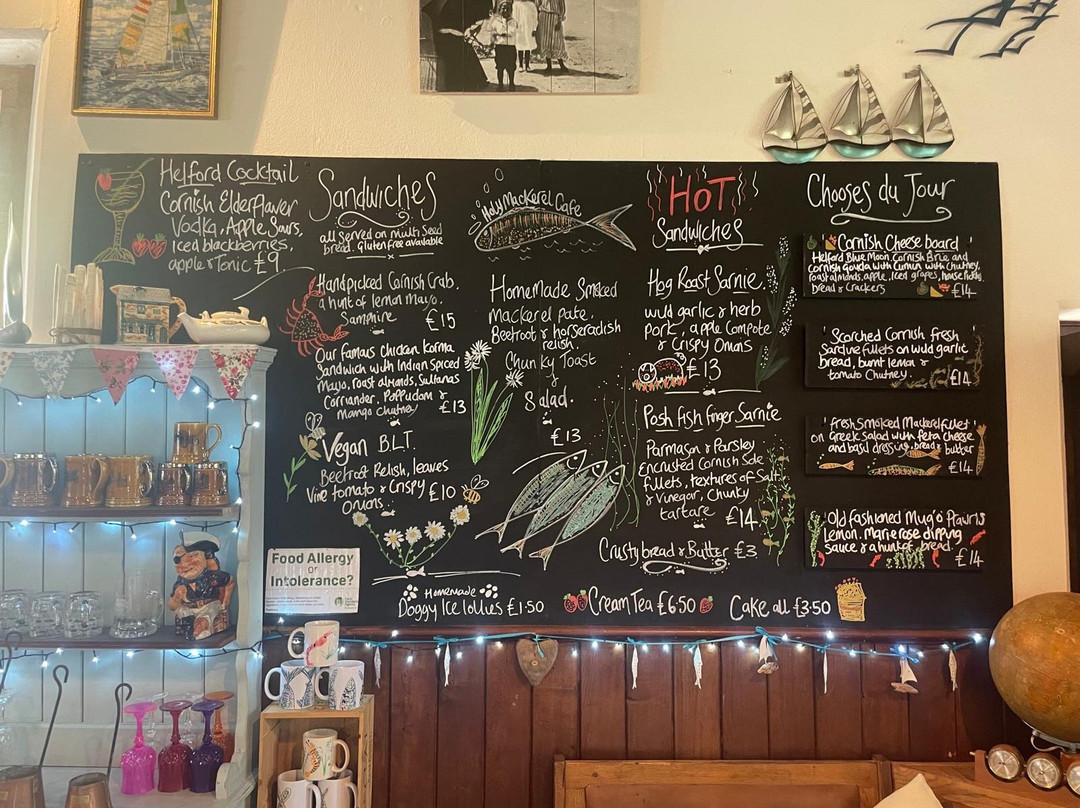 Helford Cocktail
Cornish Elderflower
Vodka, Apple Sours,
iced blackberries,
apple & Tonic £9
Sandwiches
all served on Multi Seed
bread. Gluten free available
Handpicked Cornish Crab.
a hint of lemon Mayo.
Samphire £15
Our famous chicken Korma
Sandwich with Indian Spiced
Mayo, roast almonds, Sultanas
Corriander, Poppudom &
Mango Chutney £13
Vegan B.L.T.
Beetroot Relish, leaves
Vine tomato & Crispy £10
Onions
Holy Mackerel Cafe
Homemade Smoked
Mackerel pate.
Beetroot & horseradish
relish.
Chunky Toast
&
Salad.
£13
HOT
Sandwiches
Hog Roast Sarnie
wild garlic & herb
pork, apple Compote
& Crispy Onions
£13
Posh fish finger Sarnie
Parmasan & Parsley
Encrusted Cornish Sole
fillets, textures of Salt
& Vinegar, Chunky
tartare
£14
Crusty bread & Butter £3
Chooses du Jour
Cornish Cheese board
Helford Blue Moon, Cornish Brie and
Cornish Gouda with Cumin with Chutney,
roast almonds, apple, iced grapes, house
bread & Crackers £14
Scorched Cornish fresh
Sardine fillets on wild garlic
bread, burnt lemon &
tomato Chutney. £14
Fresh Smoked Mackerel fillet
on Greek Salad with feta cheese
and basil dressing, bread & butter
£14
Old fashioned Mug'o' Prawns
Lemon. Marierose dipping
sauce & a hunk of bread.
£14
Homemade
Doggy Ice lollies £1.50
Cream Tea £6.50
Cake all £3.50
Food Allergy
or
Intolerance?